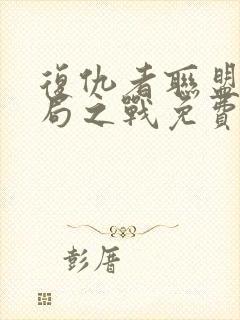 復仇者聯盟
局之戰免費
彭厝